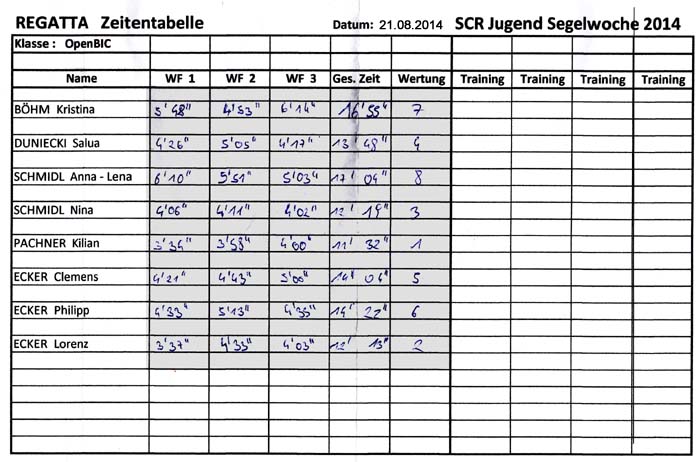 REGATTA Zeitentabelle Datum: 21.08.2014 SCR Jugend Segelwoche 2014
Klasse : OpenBIC
Name WF 1 WF 2 WF 3 Ges. Zeit Wertung Training Training Training Training
BÖHM Kristina 5'48" 4'53" 6'14" 16'55" 7
DUNIECKI Salua 4'26" 5'05" 4'17" 13'48" 4
SCHMIDL Anna - Lena 6'10" 5'51" 5'03" 17'04" 8
SCHMIDL Nina 4'06" 4'11" 4'02" 12'19" 3
PACHNER Kilian 3'34" 3'58" 4'00" 11'32" 1
ECKER Clemens 4'21" 4'43" 5'00" 14'04" 5
ECKER Philipp 4'33" 5'13" 4'35" 14'22" 6
ECKER Lorenz 3'37" 4'33" 4'03" 12'13" 2